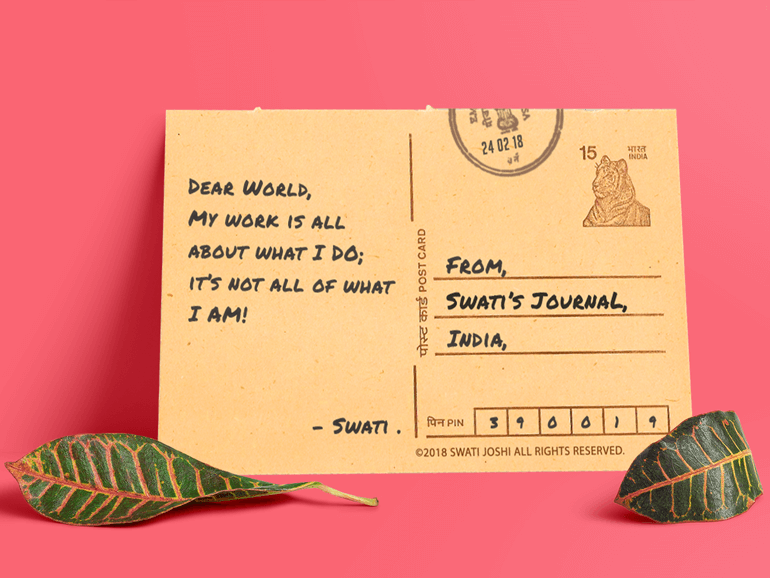 DEAR WORLD,
MY WORK IS ALL
ABOUT WHAT I DO;
IT'S NOT ALL OF WHAT
I AM!
- SWATI.
पोस्ट कार्ड POST CARD
24 02 18
15 भारत
INDIA
FROM,
SWATI'S JOURNAL,
INDIA,
पिन PIN 3 9 0 0 1 9
©2018 SWATI JOSHI ALL RIGHTS RESERVED.